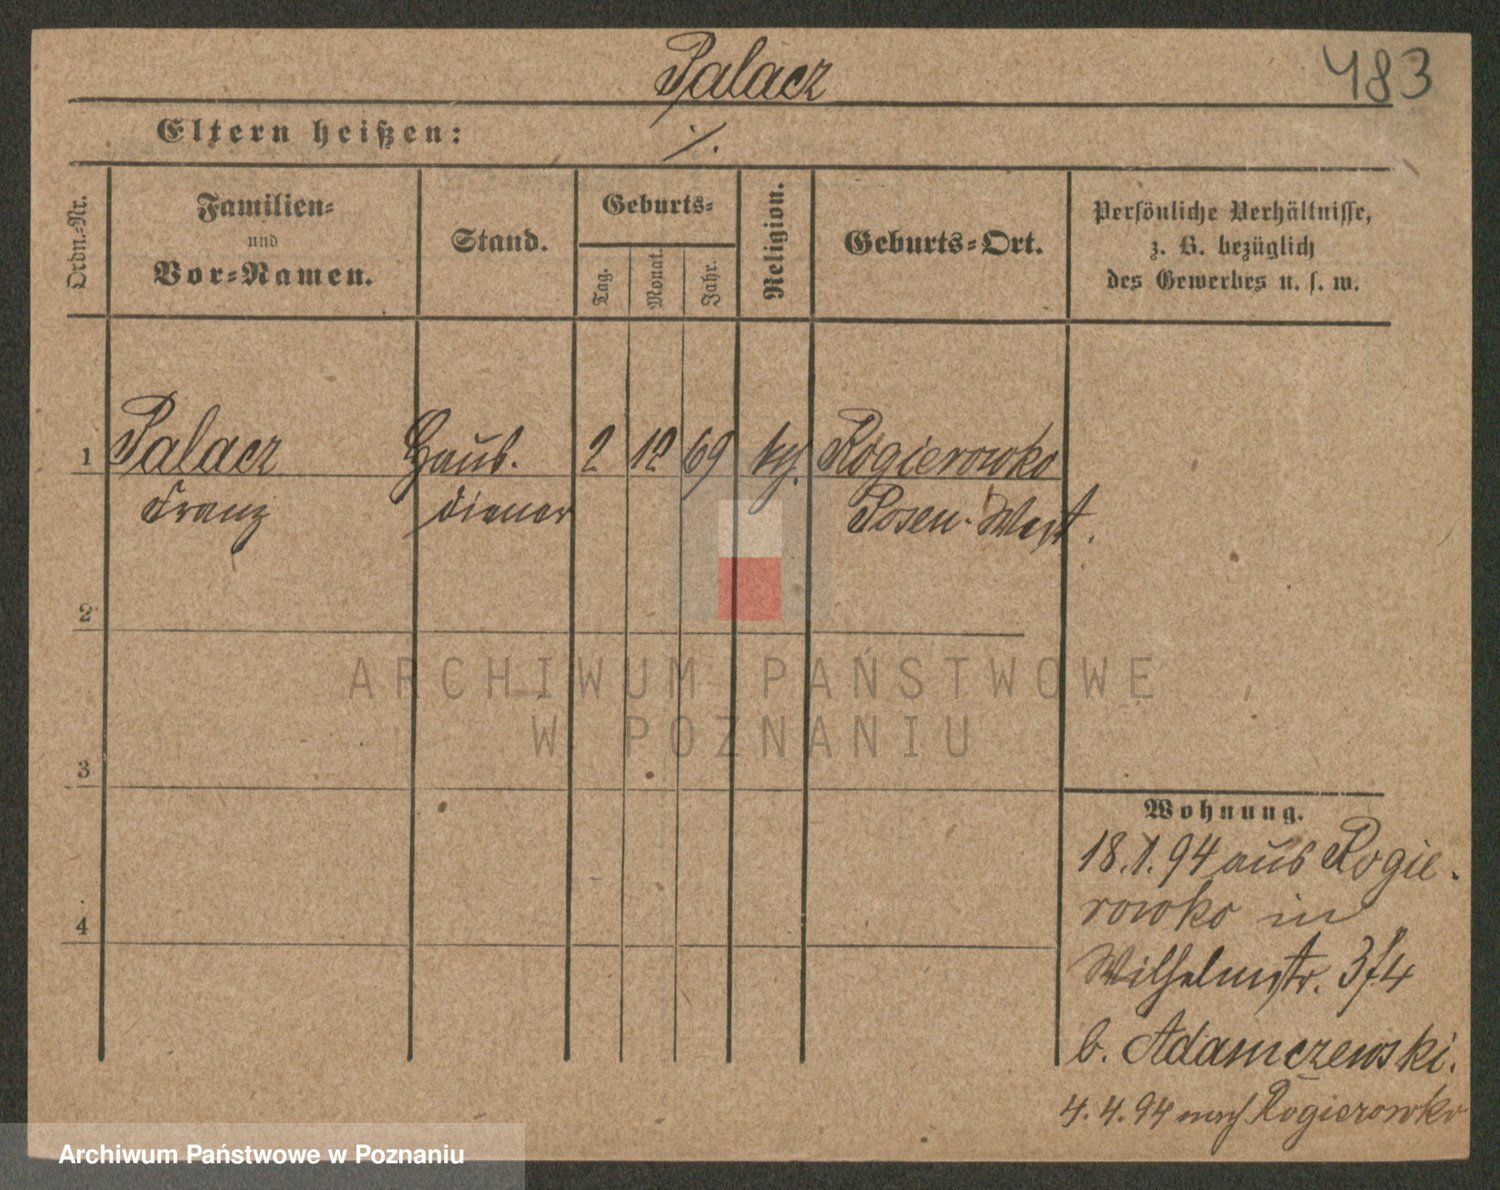 Palacz
483
Eltern heißen: ./.
Ordn.-Nr.
Familien-
und
Vor-Namen.
Stand.
Geburts-
Tag.
Monat.
Jahr.
Religion.
Geburts-Ort.
Persönliche Verhältnisse,
z. B. bezüglich
des Gewerbes u. s. w.
1 Palacz Haus- 2 12 69 Rogierowko
Franz diener Posen-West.
2
3
4
ARCHIWUM PAŃSTWOWE
W POZNANIU
Wohnung.
18.1.94 aus Rogie-
rowko in
Wilhelmstr. 3/4
b. Adamczewski.
4.4.94 nach Rogierowko
Archiwum Państwowe w Poznaniu